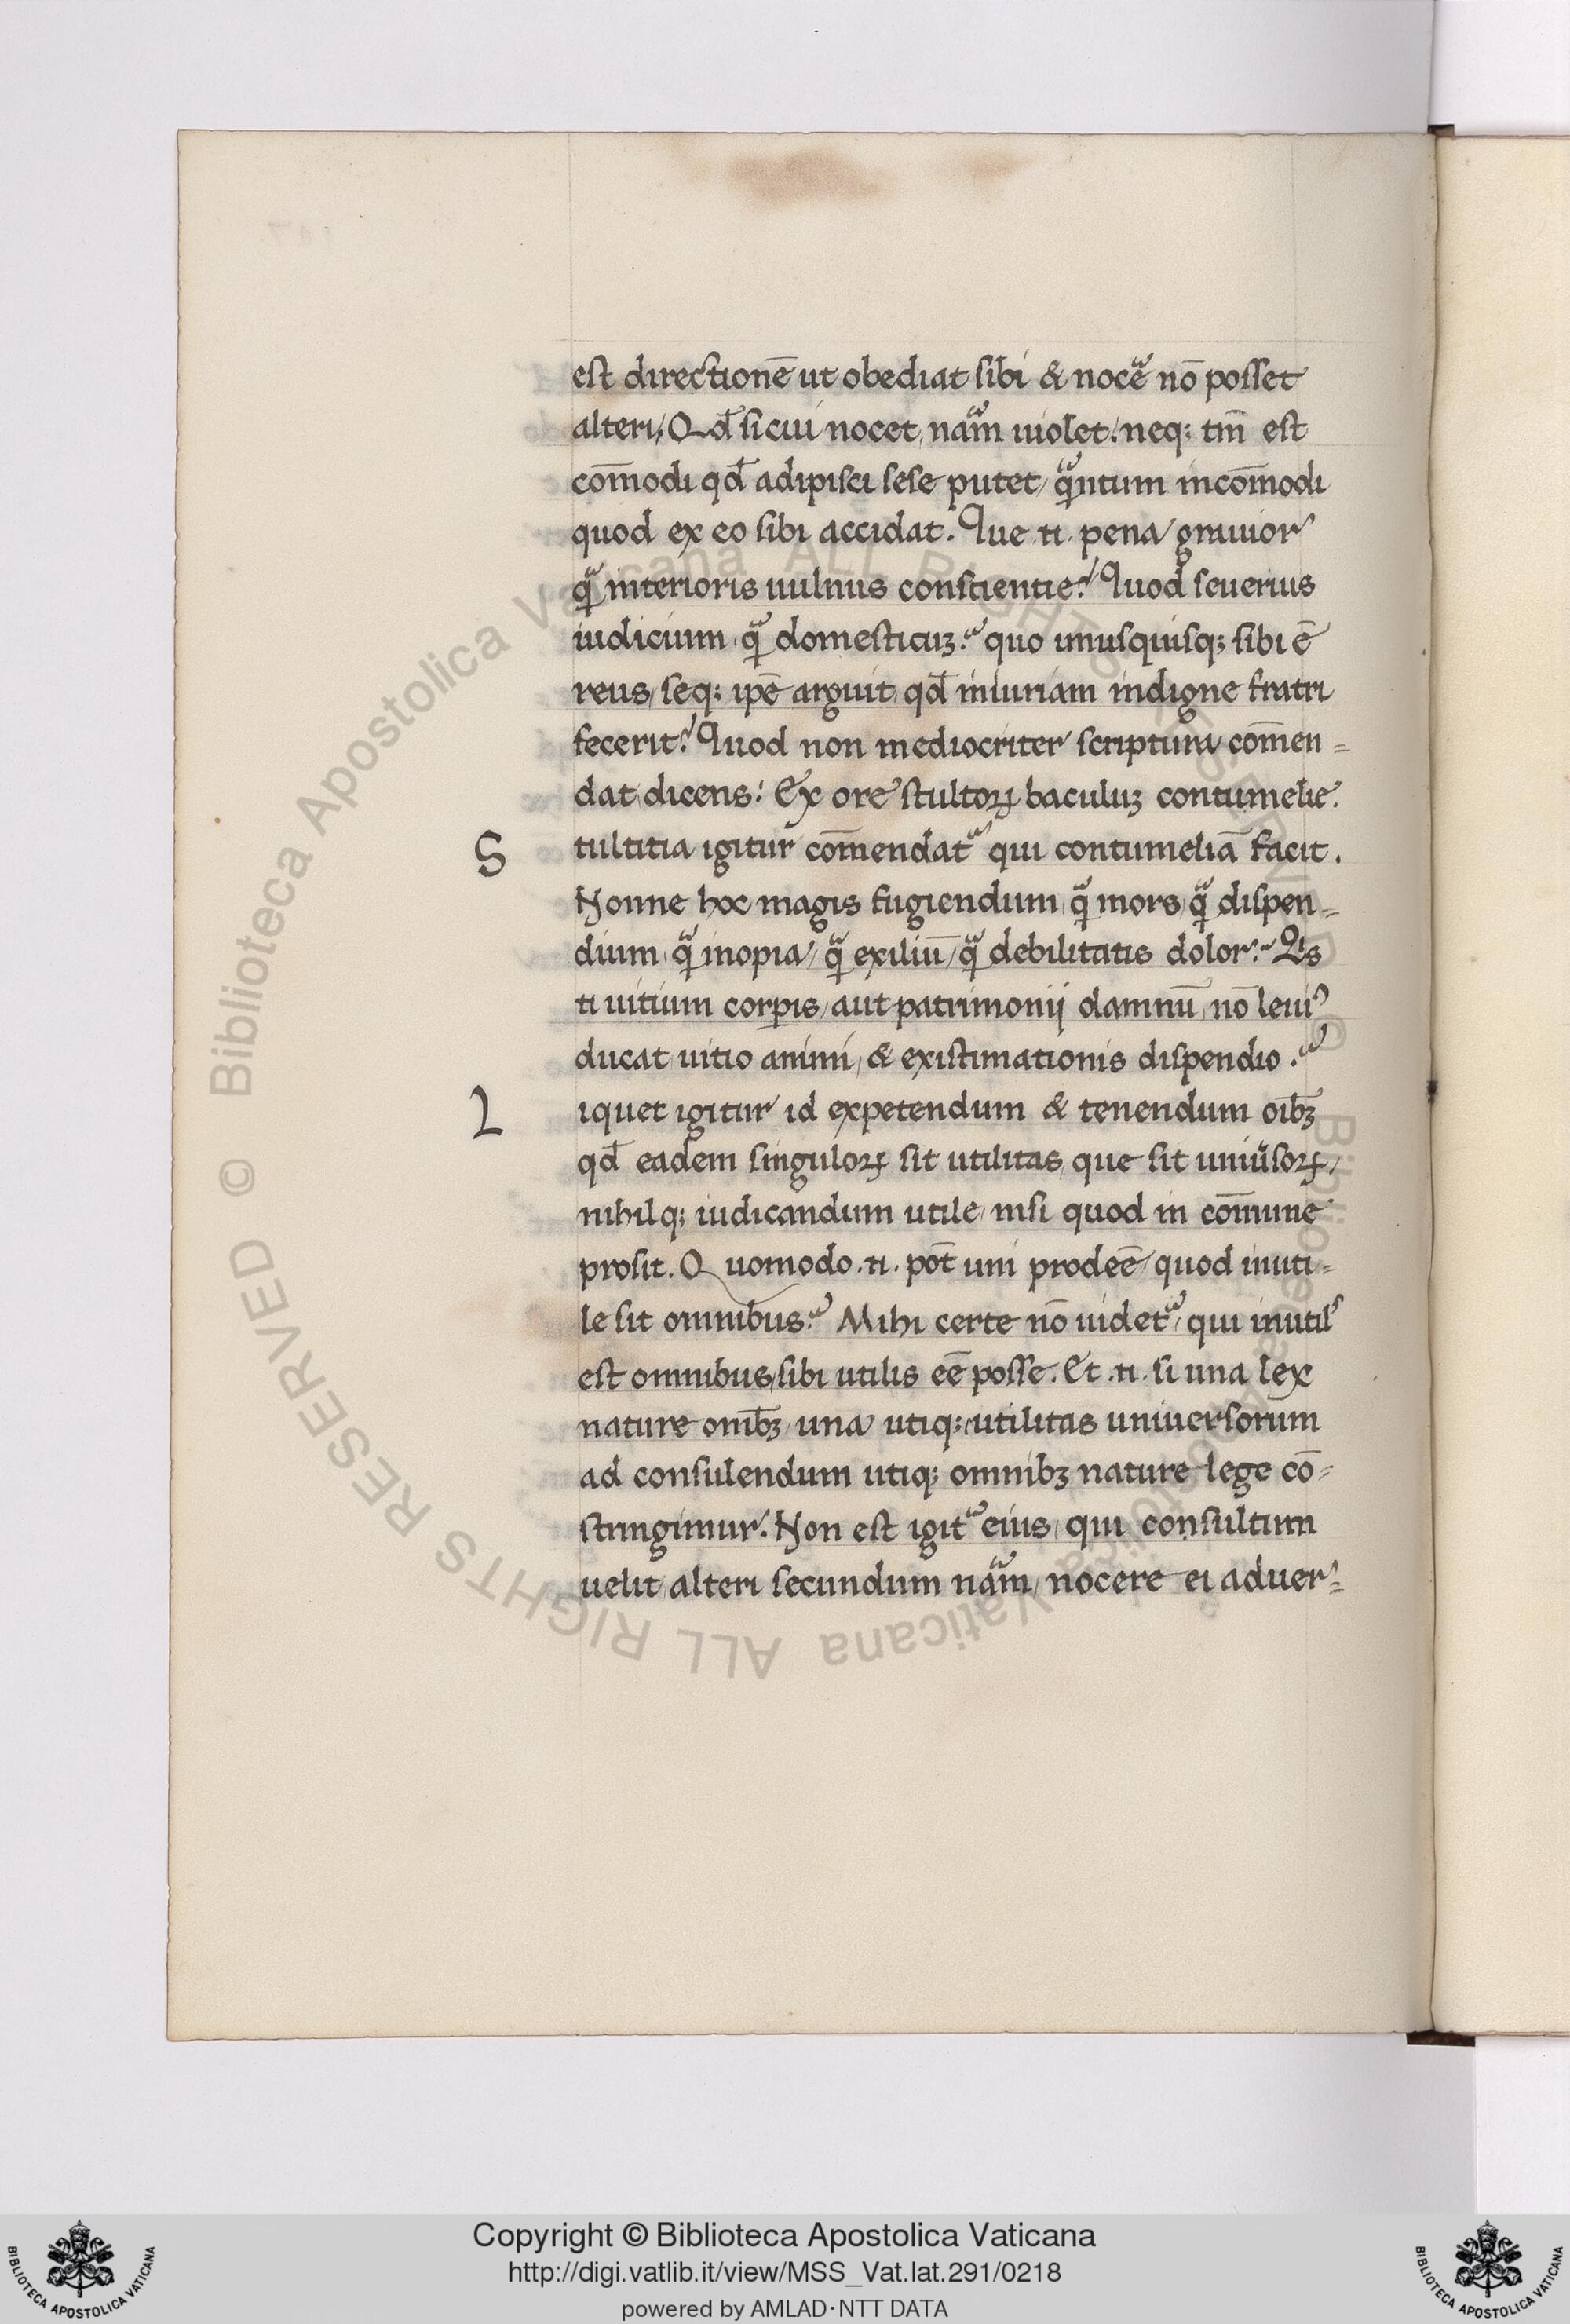 est directionē ut obediat sibi & nocēᷓ nō posset
alteri, Qd̄ si cui nocet, naᷓm uiolet: neq; tm̄ est
cōmodi qd̄ adipisci sese putet, qᷓntum incōmodi
quod ex eo sibi accidat. Que .n. pena grauior
qᷓ interioris uulnus conscientie? Quod seuerius
iudicium qᷓ domesticuꝫ? quo unusquisq; sibi ē
reus, seq; ip̄e arguit qd̄ iniuriam indigne fratri
fecerit? Quod non mediocriter scriptura cōmen=
dat, dicens: Ex ore stultoꝝ baculuꝫ contumelie.
S tultitia igitur cōmendatᷓ qui contumeliā facit.
Nonne hoc magis fugiendum qᷓ mors, qᷓ dispen=
dium, qᷓ inopia, qᷓ exiliū, qᷓ debilitatis dolor? Qis
.n. uitium corꝑis, aut patrimonij damnū, nō leuiꝰ
ducat uitio animi, & existimationis dispendio?
L iquet igitur id expetendum & tenendum oībꝫ
qd̄ eadem singuloꝝ sit utilitas, que sit uniūsoꝝ,
nihilq; iudicandum utile, nisi quod in cōmune
prosit. Quomodo .n. pōt uni prodeē, quod inuti=
le sit omnibus? Mihi certe nō uidetᷓ, qui inutil̕
est omnibus, sibi utilis eē posse. Et .n. si una lex
nature omībꝫ, una utiq; utilitas uniuersorum
ad consulendum utiq; omnibꝫ nature lege cō=
stringimur. Non est igitᷓ eius, qui consultum
uelit alteri secundum naᷓm, nocere ei aduer=
© Biblioteca Apostolica Vaticana ALL RIGHTS RESERVED © Biblioteca Apostolica Vaticana ALL RIGHTS RESERVED
BIBLIOTECA APOSTOLICA VATICANA
Copyright © Biblioteca Apostolica Vaticana
http://digi.vatlib.it/view/MSS_Vat.lat.291/0218
powered by AMLAD·NTT DATA
BIBLIOTECA APOSTOLICA VATICANA